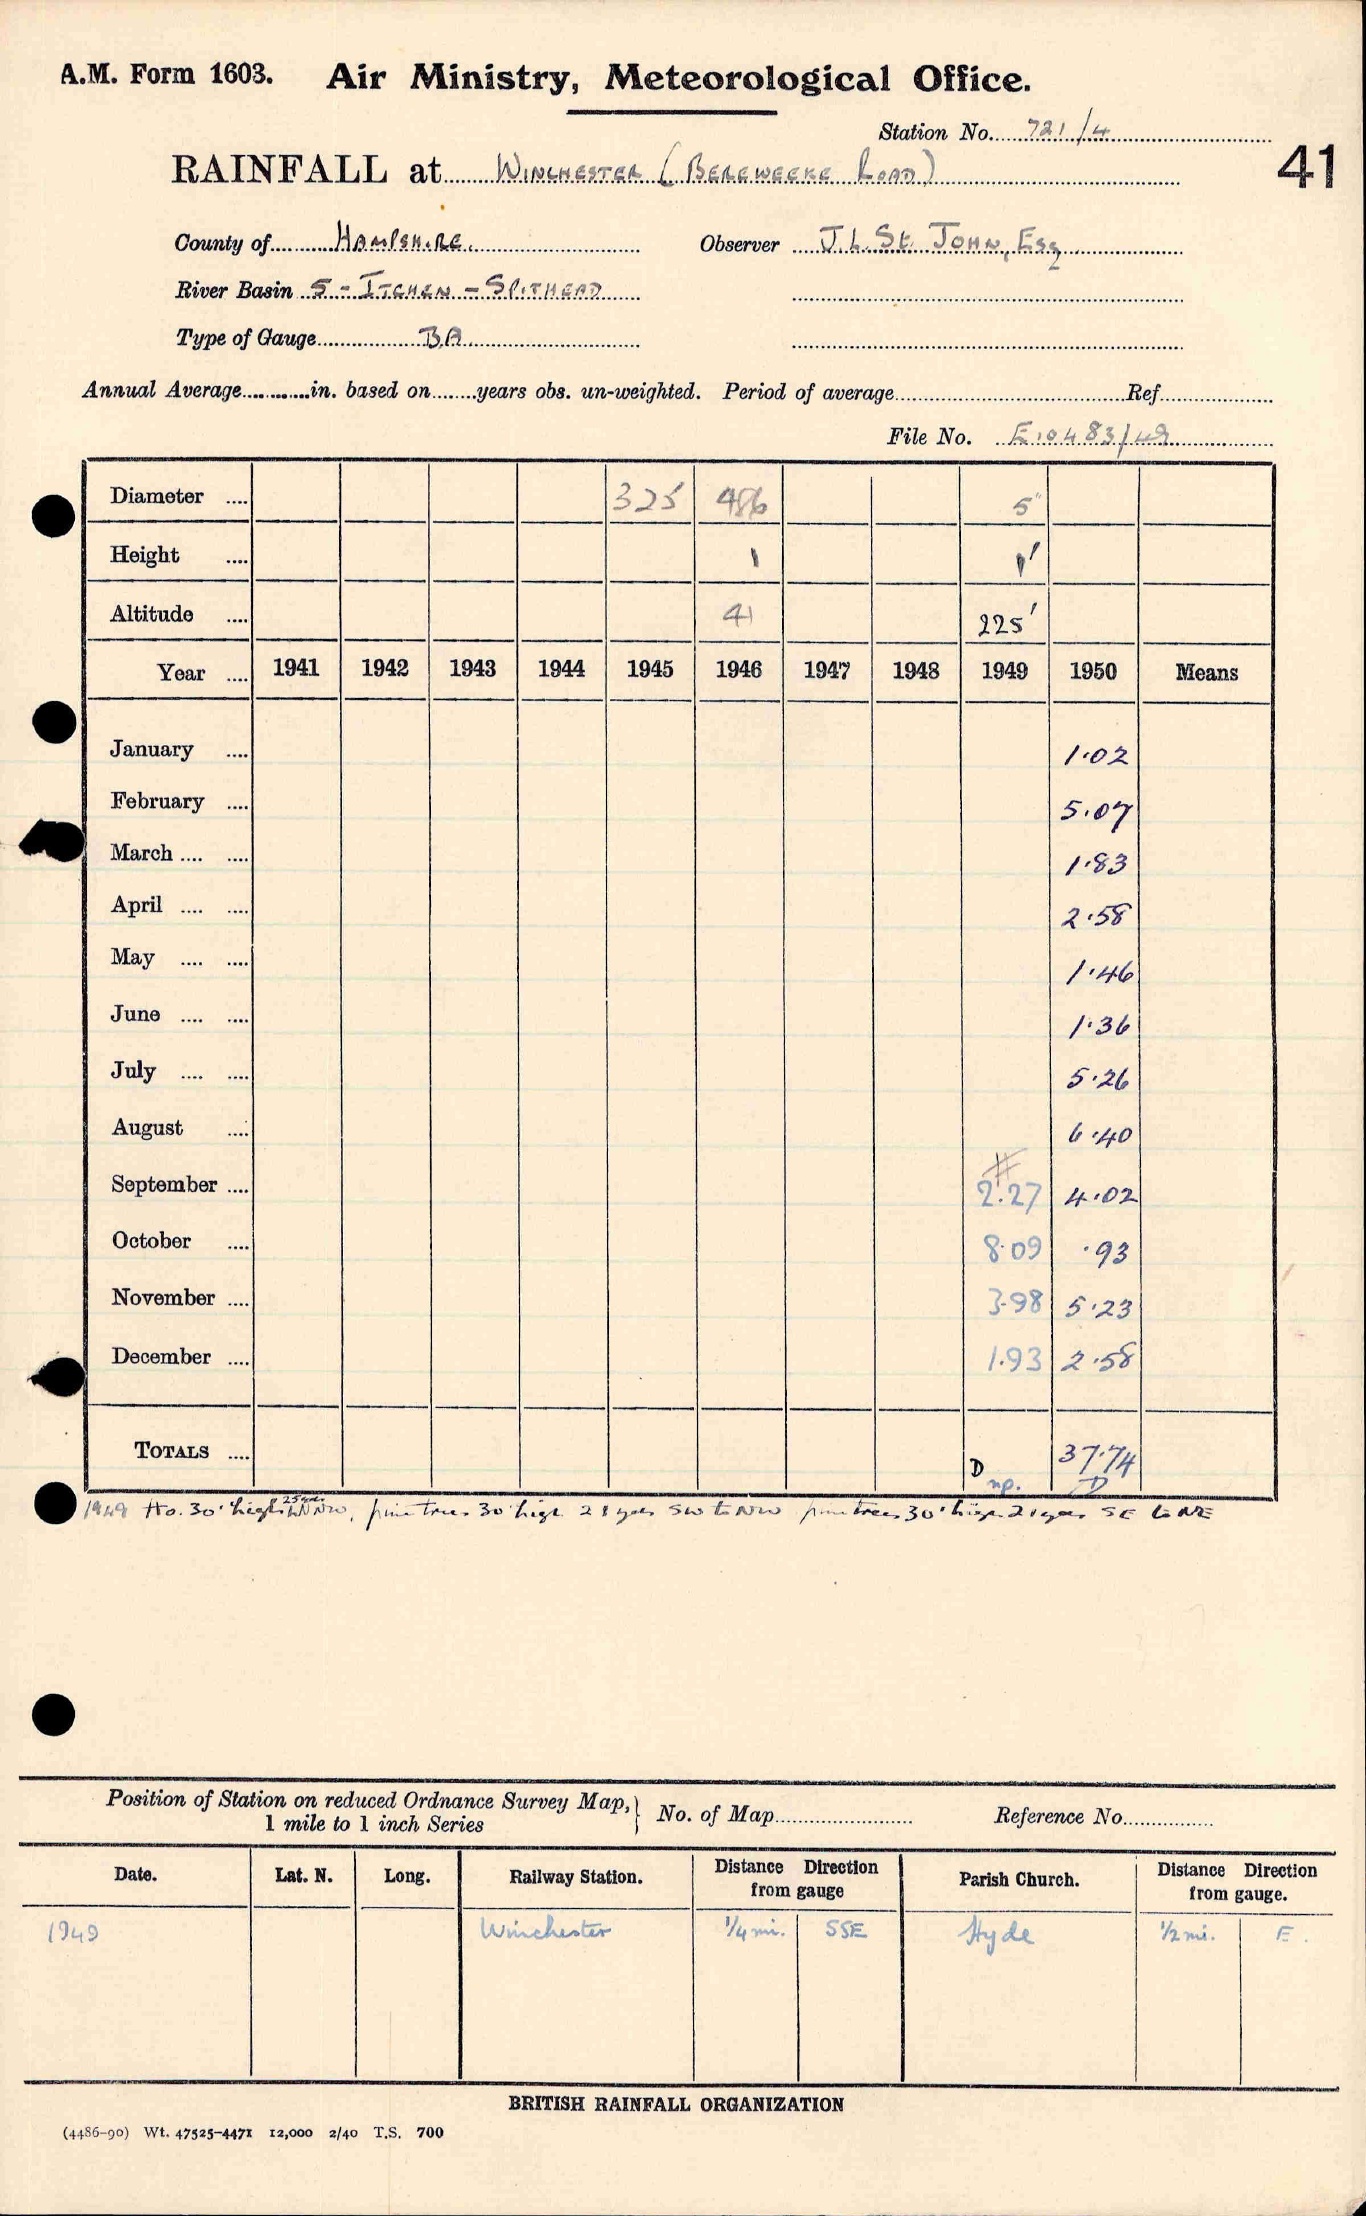 A.M. Form 1603. Air Ministry, Meteorological Office.
Station No. 721/4
41
RAINFALL at WINCHESTER (BEREWEEKE ROAD)
County of HAMPSHIRE. Observer J.L. St. JOHN, Esq
River Basin 5 - ITCHEN - SPITHEAD
Type of Gauge BA.
Annual Average in. based on years obs. un-weighted. Period of average Ref
File No. E10483/49
Diameter 325 486 5"
Height 1 1'
Altitude 41 225'
Year 1941 1942 1943 1944 1945 1946 1947 1948 1949 1950 Means
January 1.02
February 5.07
March 1.83
April 2.58
May 1.46
June 1.36
July 5.26
August 6.40
#
September 2.27 4.02
October 8.09 .93
November 3.98 5.23
December 1.93 2.58
TOTALS D 37.74
np. D
1949 Ho. 30' high NNW, pine trees 30' high 21 yds SW to NW pine trees 30' high 21 yds SE to NE
Position of Station on reduced Ordnance Survey Map, 1 mile to 1 inch Series } No. of Map Reference No.
Date. Lat. N. Long. Railway Station. Distance Direction from gauge Parish Church. Distance Direction from gauge.
1949 Winchester 1/4 mi. SSE Hyde 1/2 mi. E.
BRITISH RAINFALL ORGANIZATION
(4486-90) Wt. 47525-4471 12,000 2/40 T.S. 700